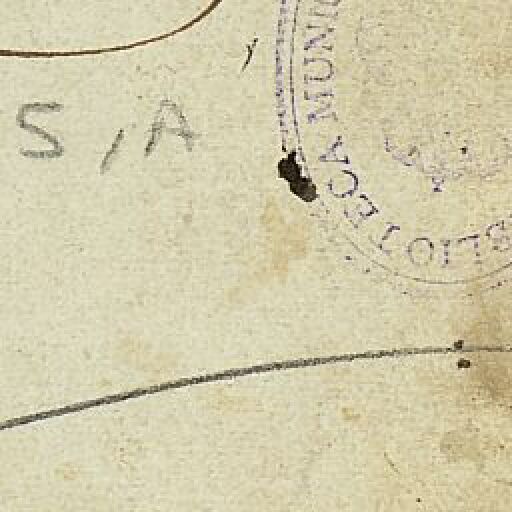 S, A
BLIOTECA MUNIC